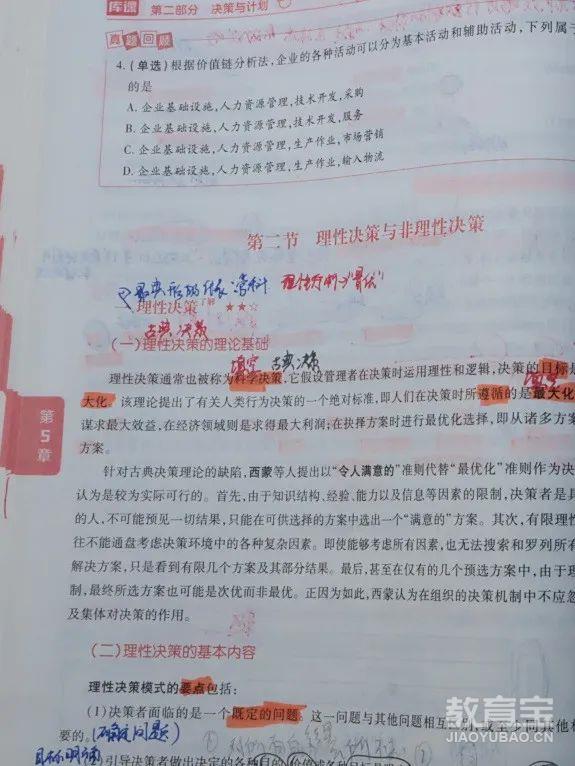 库课 第二部分 决策与计划
真题回顾
4.(单选)根据价值链分析法,企业的各种活动可以分为基本活动和辅助活动,下列属于
的是
A. 企业基础设施,人力资源管理,技术开发,采购
B. 企业基础设施,人力资源管理,技术开发,服务
C. 企业基础设施,人力资源管理,生产作业,市场营销
D. 企业基础设施,人力资源管理,生产作业,输入物流
第二节 理性决策与非理性决策
理性决策 了解 ★★☆
古典决策
(一)理性决策的理论基础
填空 古典决策
理性决策通常也被称为科学决策,它假设管理者在决策时运用理性和逻辑,决策的目标是
大化。该理论提出了有关人类行为决策的一个绝对标准,即人们在决策时所遵循的是最大化
谋求最大效益,在经济领域则是求得最大利润;在抉择方案时进行最优化选择,即从诸多方案
方案。
第5章
针对古典决策理论的缺陷,西蒙等人提出以“令人满意的”准则代替“最优化”准则作为决
认为是较为实际可行的。首先,由于知识结构、经验、能力以及信息等因素的限制,决策者是具
的人,不可能预见一切结果,只能在可供选择的方案中选出一个“满意的”方案。其次,有限理性
往不能通盘考虑决策环境中的各种复杂因素。即使能够考虑所有因素,也无法搜索和罗列所有
解决方案,只是看到有限几个方案及其部分结果。最后,甚至在仅有的几个预选方案中,由于理
制,最终所选方案也可能是次优而非最优。正因为如此,西蒙认为在组织的决策机制中不应忽
及集体对决策的作用。
(二)理性决策的基本内容
理性决策模式的要点包括:
(1)决策者面临的是一个既定的问题。这一问题与其他问题相
要的。(确定问题)
目标明确
引导决策者做出决定的各种目的
教育宝
JIAOYUBAO.CN